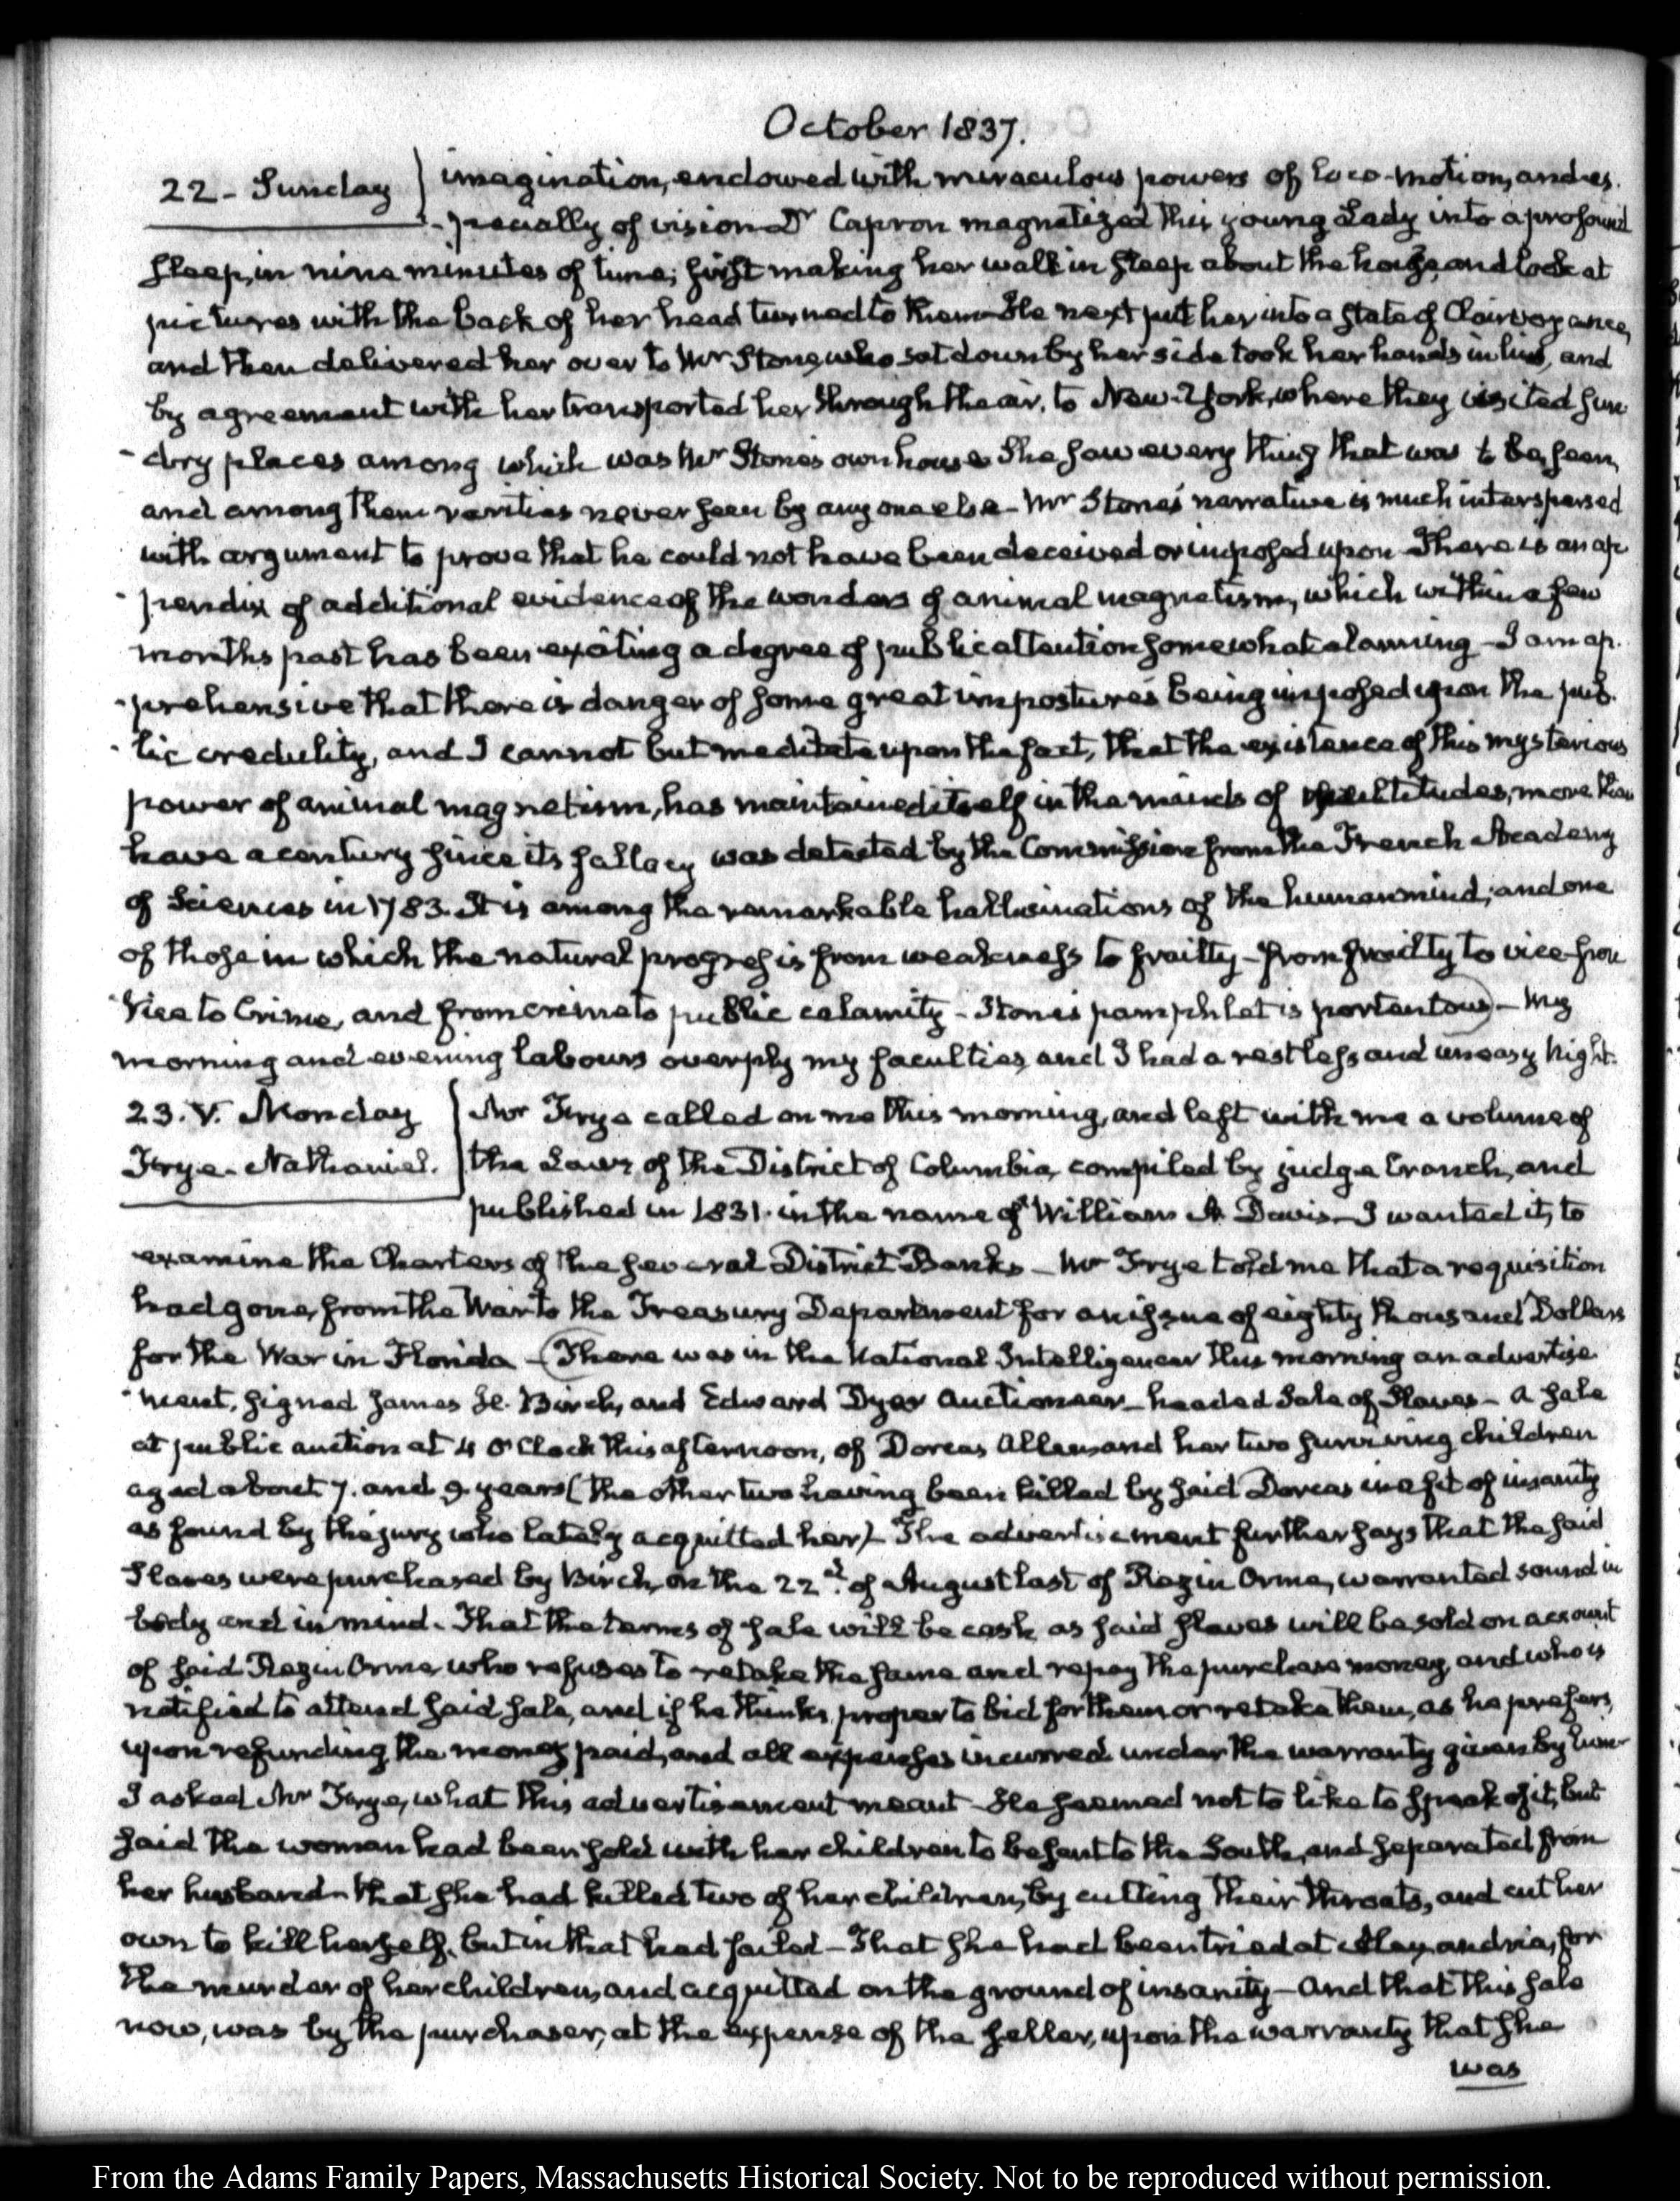 October 1837.
22 - Sunday
imagination, endowed with miraculous powers of loco-motion, and es.
-pecially of vision. Dr Capron magnetized this young Lady into a profound
sleep, in nine minutes of time; first making her walk in sleep about the house, and look at
pictures with the back of her head turned to them. He next put her into a state of Clairvoyance,
and then delivered her over to Mr Stone, who sat down by her side took her hands in his, and
by agreement with her transported her through the air, to New-York, where they visited sun
-dry places among which was Mr Stone's own house She saw every thing that was to be seen,
and among them rarities never seen by any one else - Mr Stone's narrative is much interspersed
with argument to prove that he could not have been deceived or imposed upon - There is an ap
-pendix of additional evidence of the wonders of animal magnetism, which within a few
months past has been exciting a degree of public attention somewhat alarming - I am ap.
-prehensive that there is danger of some great impostures being imposed upon the pub.
-lic credulity, and I cannot but meditate upon the fact, that the existence of this mysterious
power of animal magnetism, has maintained itself in the minds of multitudes, more than
have a century since its fallacy was detected by the Commission from the French Academy
of Sciences in 1783. It is among the remarkable hallusinations of the human mind; and one
of those in which the natural progress is from weakness to frailty - from frailty to vice - from
vice to Crime, and from crime to public calamity - Stone's pamphlet is portentous) - My
morning and evening labours overply my faculties, and I had a restless and uneasy Night.
23. V. Monday
Frye - Nathaniel.
Mr Frye called on me this morning, and left with me a volume of
the Laws of the District of Columbia, compiled by judge Cranch, and
published in 1831. in the name of William A. Davis - I wanted it, to
examine the Charters of the several District Banks - Mr Frye told me that a requisition
had gone, from the War to the Treasury Department for an issue of eighty thousand Dollars
for the War in Florida - (There was in the National Intelligencer this morning an advertise
-ment, signed James H. Birch, and Edward Dyer Auctioneer - headed Sale of Slaves - A sale
at public auction at 4 O'Clock this afternoon, of Dorcas Allen and her two surviving children
aged about 7. and 9 years (the other two having been killed by said Dorcas in a fit of insanity
as found by the jury who lately acquitted her) - The advertisement further says that the said
Slaves were purchased by Birch, on the 22d. of August last of Rezin Orme, warranted sound in
body and in mind. That the terms of sale will be cash as said slaves will be sold on account
of said Rezin Orme, who refuses to retake the same and repay the purchase money, and who is
notified to attend said sale, and if he thinks proper to bid for them or retake them, as he prefers,
upon refunding the money paid, and all expenses incurred under the warranty given by him -
I asked Mr Frye, what this advertisement meant - He seemed not to like to speak of it, but
said the woman had been sold with her children to be sent to the South, and separated from
her husband - that she had killed two of her children, by cutting their throats, and cut her
own to kill herself, but in that had failed - That she had been tried at Alexandria, for
the murder of her children, and acquitted on the ground of insanity - And that this sale
now, was by the purchaser, at the expense of the seller, upon the warranty that she
was
From the Adams Family Papers, Massachusetts Historical Society. Not to be reproduced without permission.